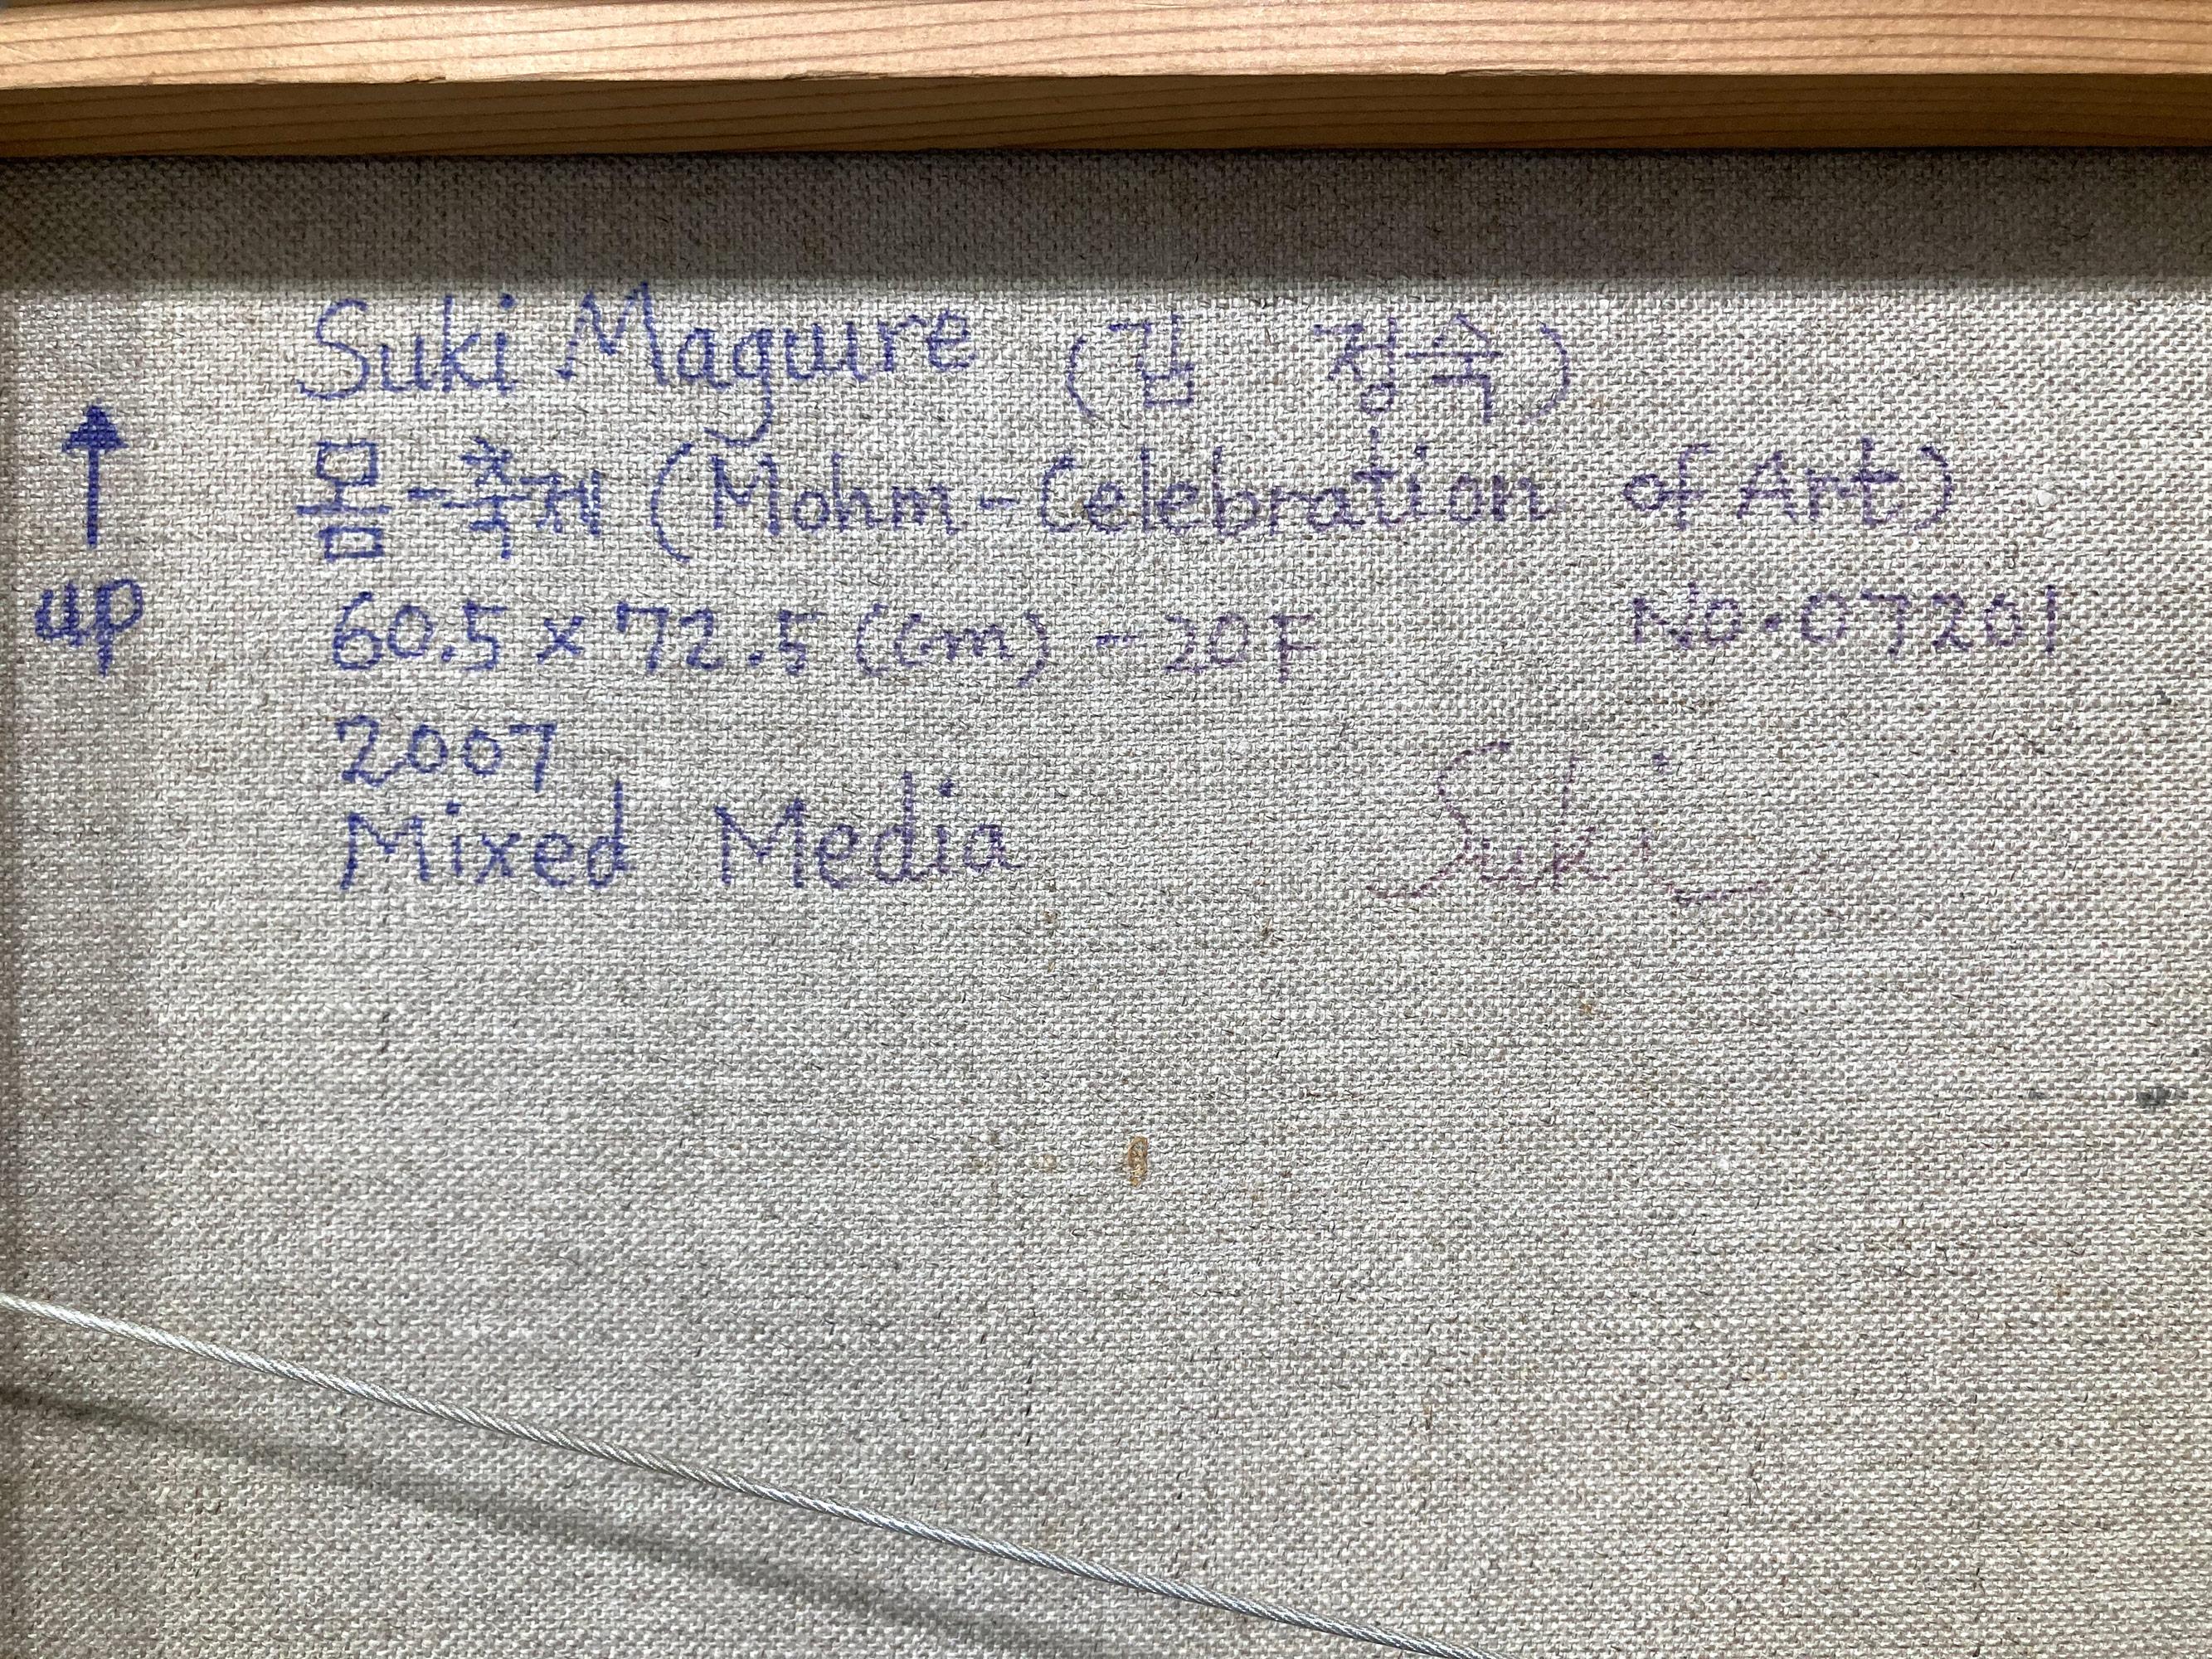 Suki Maguire (김 정숙)
몸-축제 (Mohm-Celebration of Art)
up
60.5 x 72.5 (cm) - 20F No. 07201
2007
Mixed Media
Suki